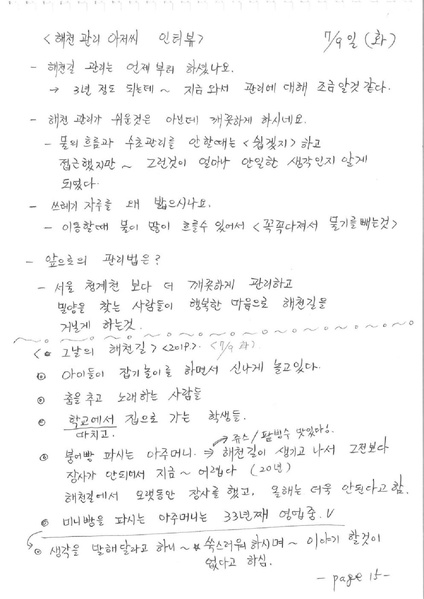 <해천 관리 아저씨 인터뷰> 7/9일 (화)
- 해천길 관리는 언제부터 하셨나요.
→ 3년 정도 되는데~ 지금 와서 관리에 대해 조금 알것 같다.
- 해천 관리가 쉬울것은 아닌데 깨끗하게 하시네요.
- 물의 흐름과 수초관리를 안할때는 <쉽겠지> 하고
접근했지만~ 그런것이 얼마나 안일한 생각인지 알게
되었다.
- 쓰레기 자루를 왜 밟으시나요.
- 이동할때 물이 많이 흐를수 있어서 <꼭꼭다져서 물기를빼는것>
- 앞으로의 관리법은?
- 서울 청계천 보다 더 깨끗하게 관리하고
밀양을 찾는 사람들이 행복한 마음으로 해천길을
거닐게 하는것.
<그날의 해천길> <2019.> <7/9 화>
아이들이 잡기놀이를 하면서 신나게 놀고있다.
춤을 추고 노래하는 사람들
학교에서 집으로 가는 학생들.
마치고.
→ 쥬스/팥빙수 맛있다.
붕어빵 파시는 아주머니. → 해천길이 생기고 나서 그전보다
장사가 안되어서 지금~ 어렵다 (20년)
해천길에서 오랫동안 장사를 했고, 올해는 더욱 안된다고 함.
미니빵을 파시는 아주머니는 33년째 영업중. V
생각을 말해달라고 하니~ 쑥스러워하시며~ 이야기 할것이
없다고 하심.
- page 15 -